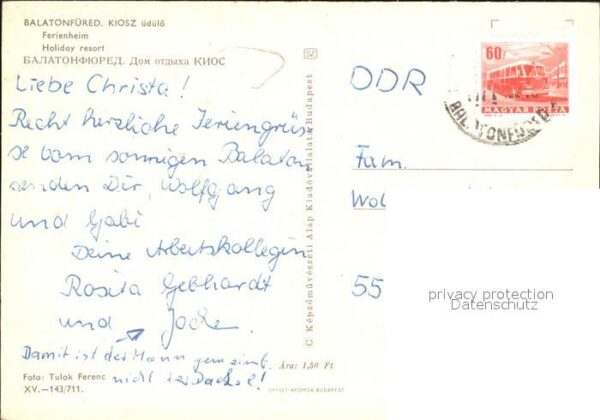 BALATONFÜRED. KIOSZ üdülő
Ferienheim
Holiday resort
БАЛАТОНФЮРЕД. Дом отдыха КИОС
Liebe Christa!
Recht herzliche Feriengrüs-
se vom sonnigen Balaton
senden Dir, Wolfgang
und Gabi
Deine Arbeitskollegin
Rosita Gebhardt
und Jocke.
Damit ist der Mann gemeint,
nicht der Dackel!
Foto: Tulok Ferenc
XV.—143/711.
Ára: 1,50 Ft
OFFSET NYOMDA BUDAPEST
© Képzőművészeti Alap Kiadóvállalata, Budapest
SZ
60f
MAGYAR POSTA
BALATONFÜRED
DDR
Fam.
55
privacy protection
Datenschutz